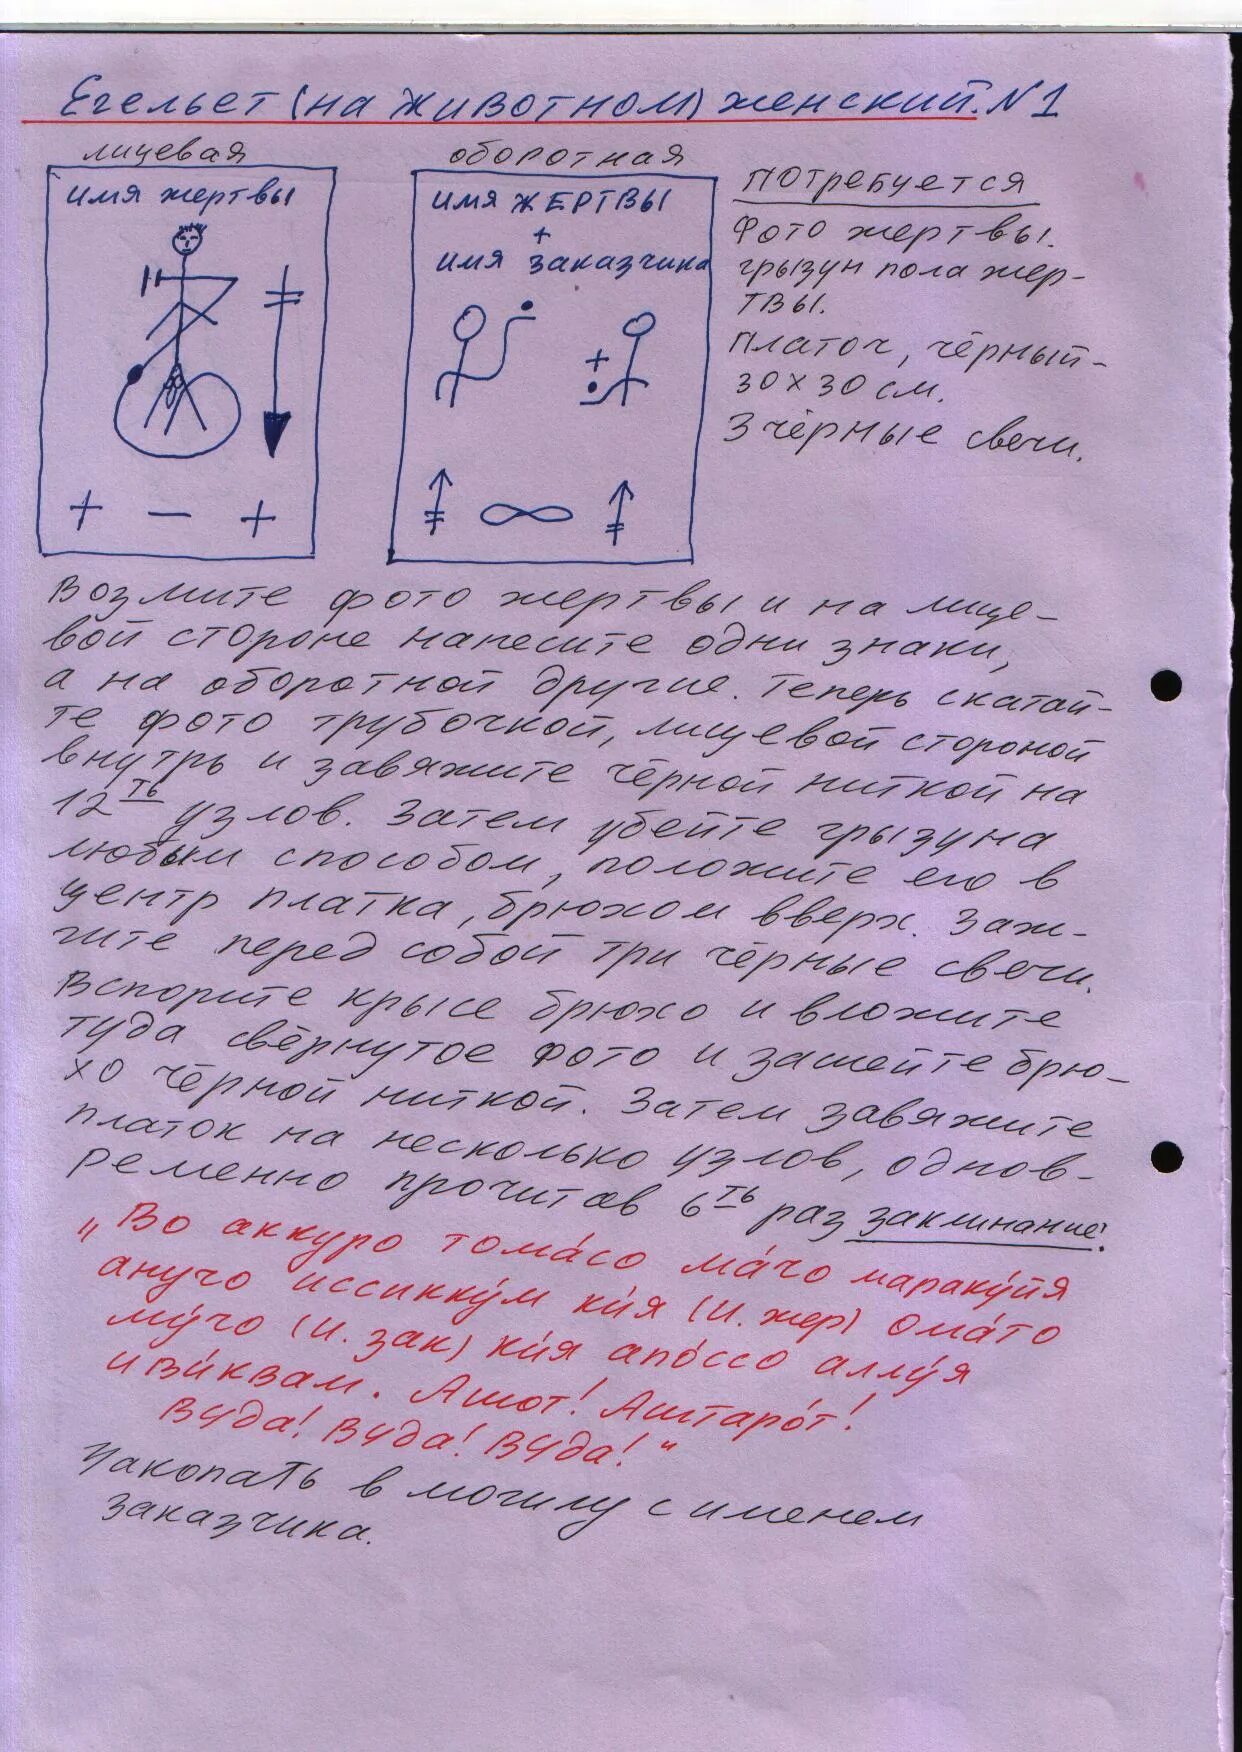 Егельет (на животном) женский. N1
лицевая
имя жертвы
+ – +
оборотная
имя ЖЕРТВЫ
+
имя заказчика
+
∞
Потребуется
Фото жертвы.
грызун пола жер-
твы.
Платоч, чёрный-
30х30 см.
3 чёрные свечи.
Возмите фото жертвы и на лице-
вой стороне нанесите одни знаки,
а на оборотной другие. Теперь скатай-
те фото трубочкой, лицевой стороной
внутрь и завяжите чёрной ниткой на
12ть узлов. Затем убейте грызуна
любым способом, положите его в
центр платка, брюхом вверх. Заж-
гите перед собой три чёрные свечи.
Вспорите крысе брюхо и вложите
туда свёрнутое фото и зашейте брю-
хо чёрной ниткой. Затем завяжите
платок на несколько узлов, однов-
ременно прочитав 6ть раз заклинание:
„Во аккуро тома́со ма́чо мараку́йя
анучо иссикку́м ки́я (И. жер) ома́то
му́чо (И. зак) ки́я апо́ссо аллу́я
иви́квам. Ашот! Аштаро́т!
Вуда! Вуда! Вуда!"
Закопать в могилу с именем
заказчика.